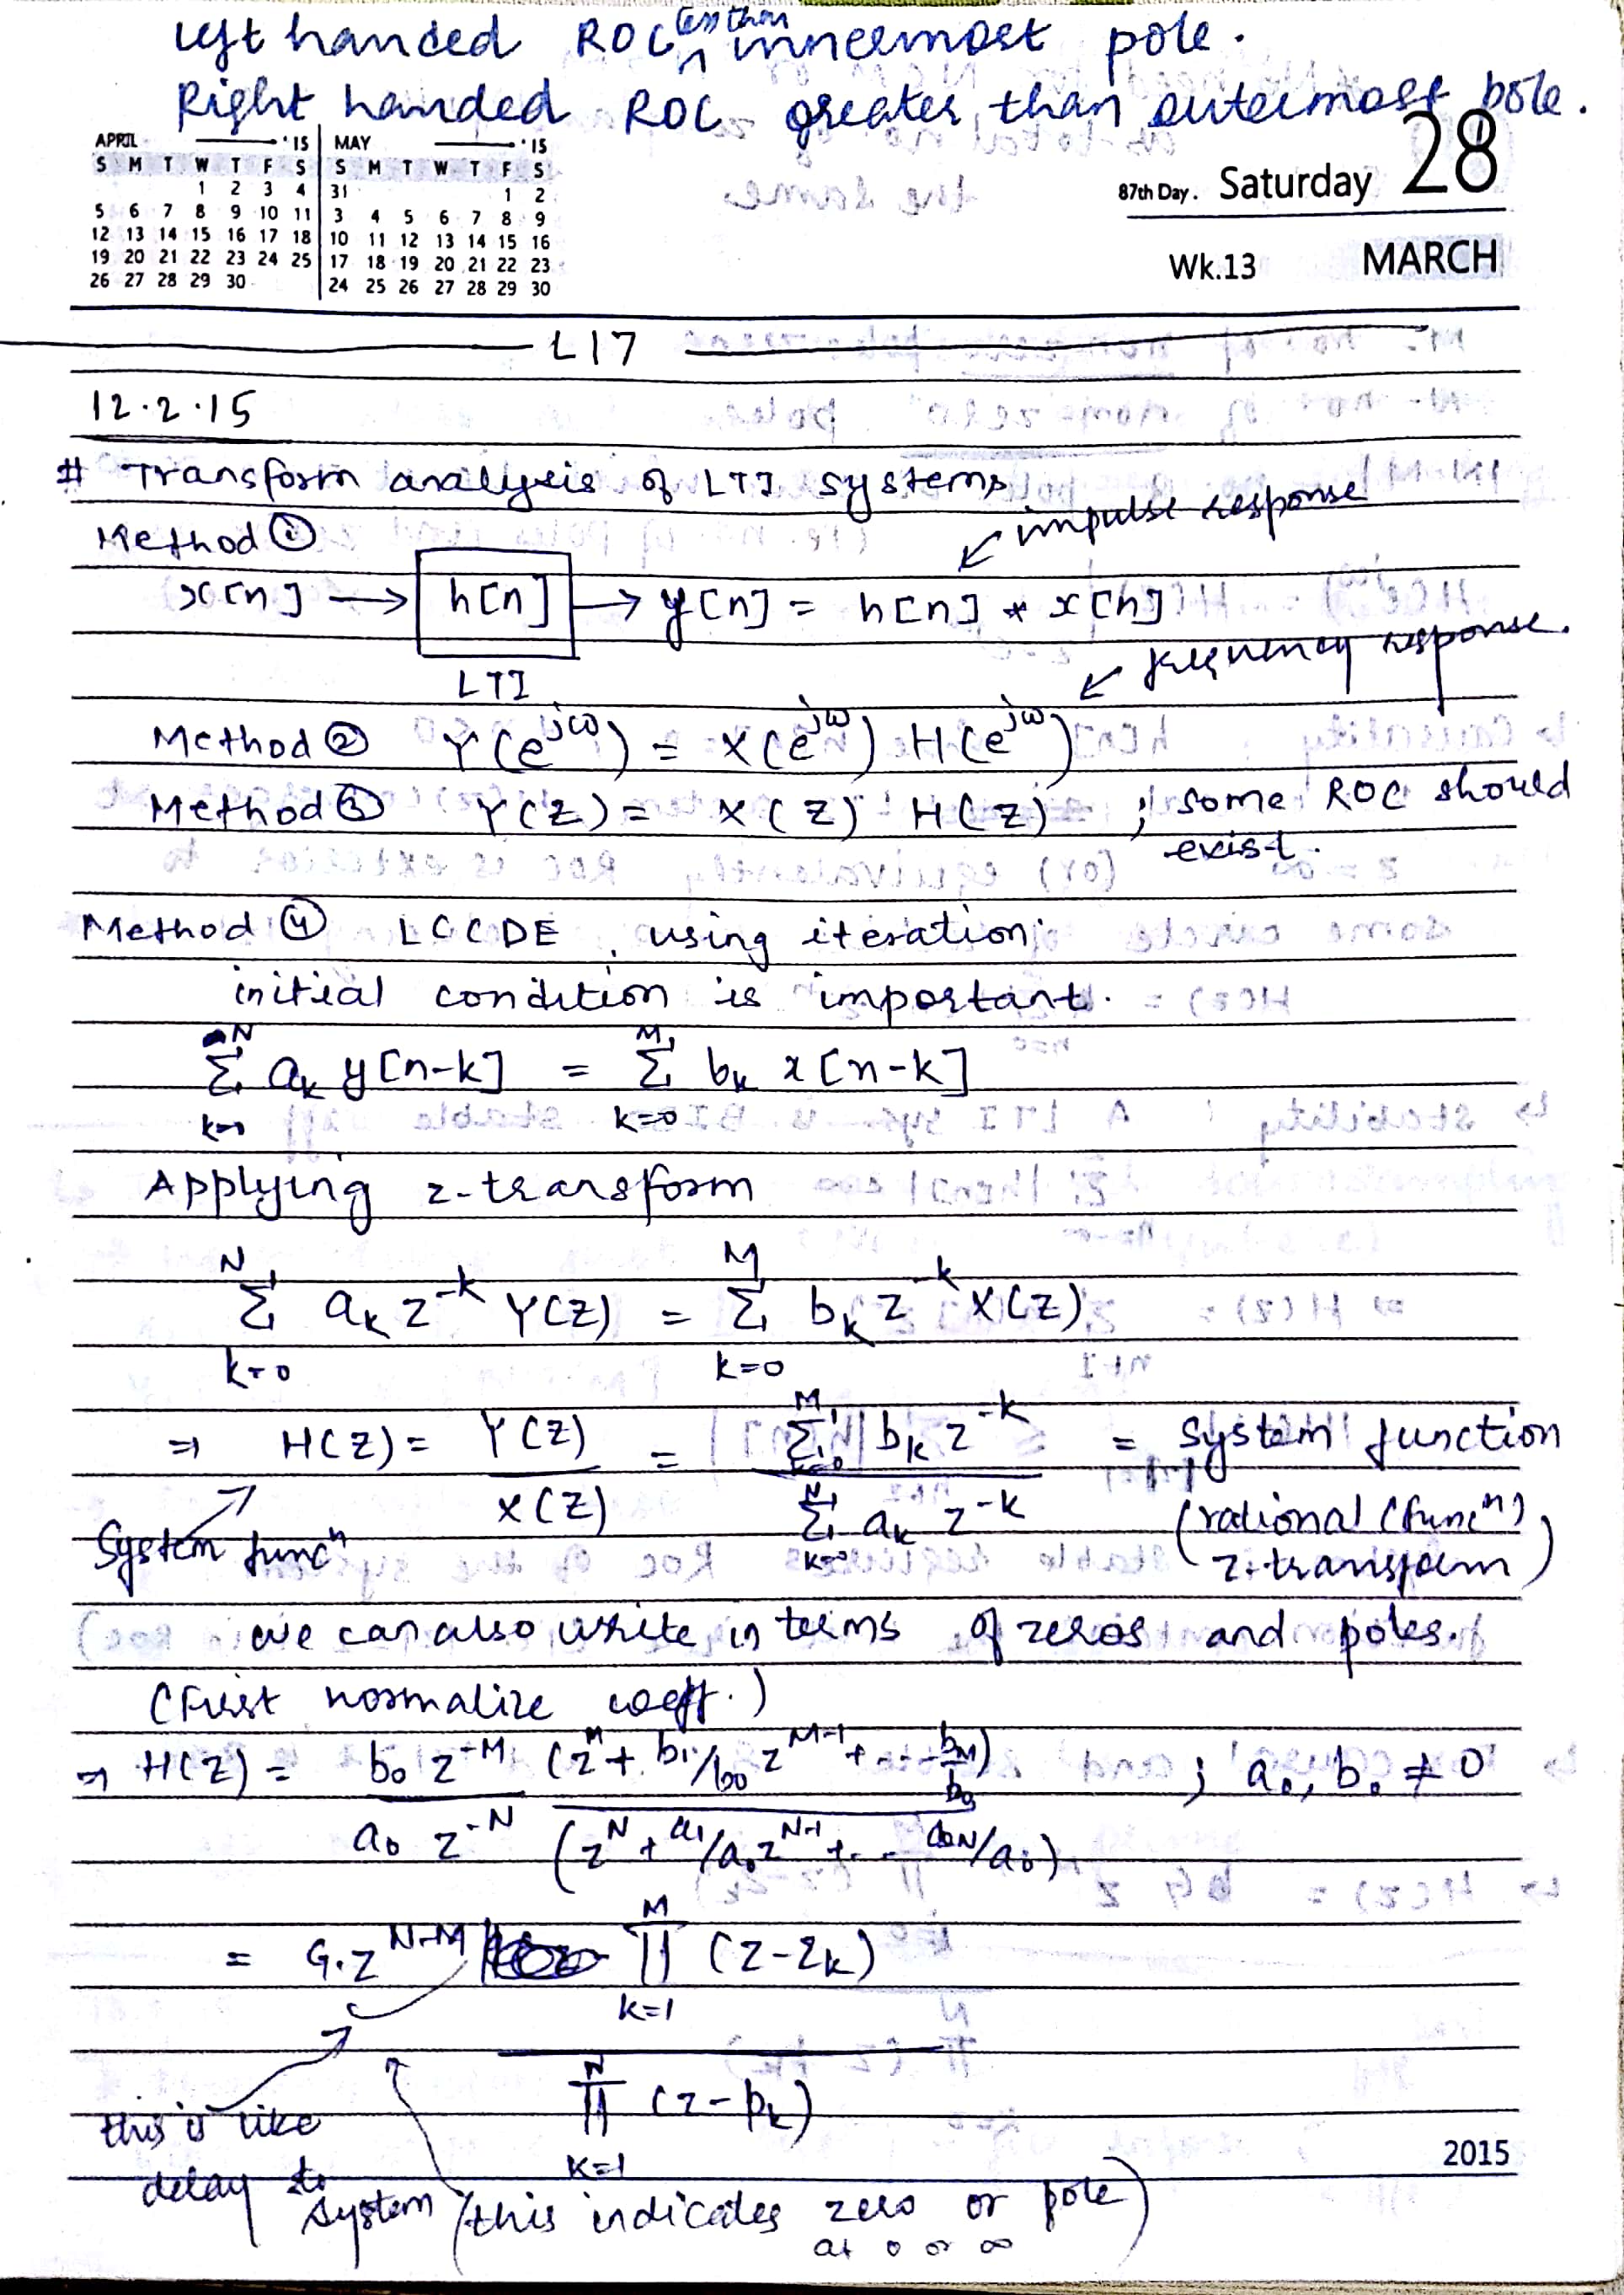 left handed ROC less than innermost pole.
Right handed ROC greater than outermost pole.
APRIL '15 MAY '15
S M T W T F S S M T W T F S
1 2 3 4 31 1 2
5 6 7 8 9 10 11 3 4 5 6 7 8 9
12 13 14 15 16 17 18 10 11 12 13 14 15 16
19 20 21 22 23 24 25 17 18 19 20 21 22 23
26 27 28 29 30 24 25 26 27 28 29 30
87th Day. Saturday 28
Wk.13 MARCH
L17
12.2.15
# Transform analysis of LTI systems
Method ① ↙ impulse response
x[n] → h[n] → y[n] = h[n] * x[n]
LTI ↙ frequency response.
Method ② Y(e^jω) = X(e^jω) H(e^jω)
Method ③ Y(z) = X(z) H(z) ; some ROC should
exist.
Method ④ LCCDE, using iteration
initial condition is important.
N Σ k=0 a_k y[n-k] = M Σ k=0 b_k x[n-k]
Applying z-transform
N Σ k=0 a_k z^-k Y(z) = M Σ k=0 b_k z^-k X(z)
⇒ H(z) = Y(z) / X(z) = M Σ k=0 b_k z^-k / N Σ k=0 a_k z^-k = system function
System funcⁿ (rational (funcⁿ)
z-transform)
we can also write in terms of zeros and poles.
(First normalize coeff.)
⇒ H(z) = b₀ z^-M (z^M + b₁/b₀ z^M-1 + --- b_M/b₀) ; a₀, b₀ ≠ 0
a₀ z^-N (z^N + a₁/a₀ z^N-1 + -- a_N/a₀)
= G.z^N-M M Π k=1 (z-z_k)
N Π k=1 (z-p_k)
this is like
delay to
system (this indicates zero or pole)
at 0 or ∞
2015